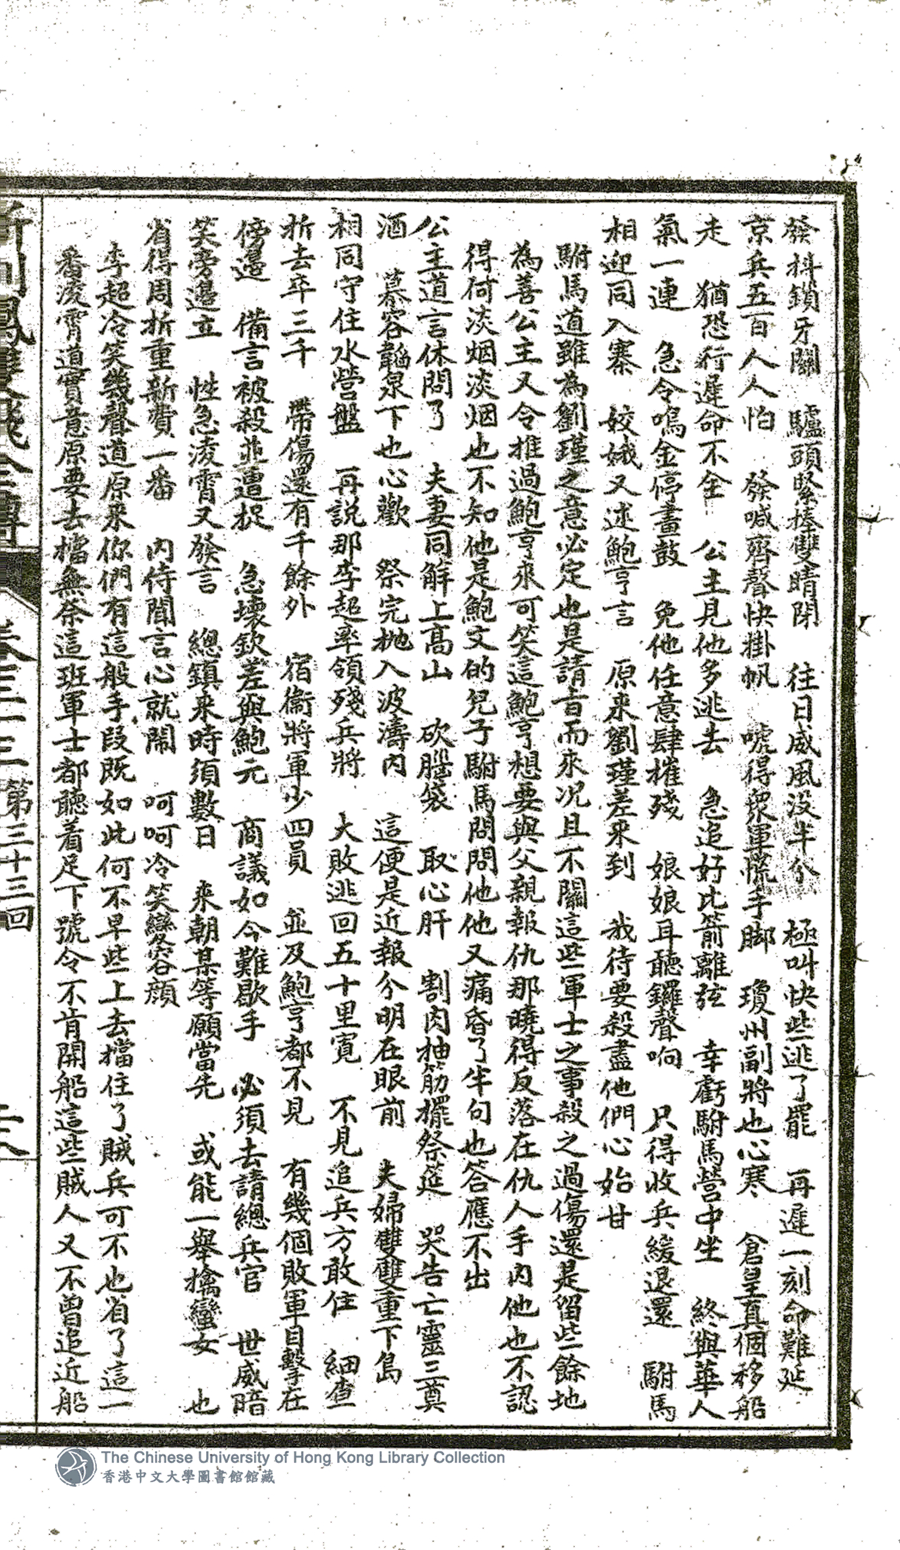 發抖鎖牙關　驢頭緊捧雙睛閉　往日威風没半分　極叫快些逃了罷　再遲一刻命難延
京兵五百人人怕　發喊齊聲快掛帆　唬得衆軍慌手脚　瓊州副將也心寒　倉皇真個移船
走　猶恐行遲命不全　公主見他多逃去　急追好比箭離弦　幸虧駙馬營中坐　終與華人
氣一連　急令鳴金停畫鼓　免他任意肆摧殘　娘娘耳聽鑼聲响　只得收兵緩退還　駙馬
相迎同入寨　姣娥又述鮑亨言　原來劉瑾差來到　我待要殺盡他們心始甘
駙馬道雖為劉瑾之意必定也是請旨而來况且不關這些軍士之事殺之過傷還是留些餘地
為善公主又令推過鮑亨來可笑這鮑亨想要與父親報仇那曉得反落在仇人手内他也不認
得何淡烟淡烟也不知他是鮑文的兒子駙馬問問他他又痛昏了半句也答應不出
公主道言休問了　夫妻同解上高山　砍腦袋　取心肝　割肉抽筋擺祭筵　哭告亡靈三奠
酒　慕容龂泉下也心歡　祭完抛入波濤内　這便是近報分明在眼前　夫婦雙雙重下島
相同守住水營盤　再説那李超率領殘兵將　大敗逃回五十里寬　不見追兵方敢住　細查
折去卒三千　帶傷還有千餘外　宿衞將軍少四員　並及鮑亨都不見　有幾個敗軍目擊在
傍邊　備言被殺並遭捉　急壞欽差與鮑元　商議如今難歇手　必須去請總兵官　世威暗
笑旁邊立　性急淩霄又發言　總鎮來時須數日　來朝某等願當先　或能一舉擒蠻女　也
省得周折重新費一番　内侍聞言心就鬧　呵呵冷笑變容顔
李超冷笑幾聲道原來你們有這般手段既如此何不早些上去擋住了賊兵可不也省了這一
番淩霄道實意原要去檔無奈這班軍士都聽着足下號令不肯開船這些賊人又不曾追近船
鳳雙飛全傳　卷三十三　第三十三回
The Chinese University of Hong Kong Library Collection
香港中文大學圖書館館藏